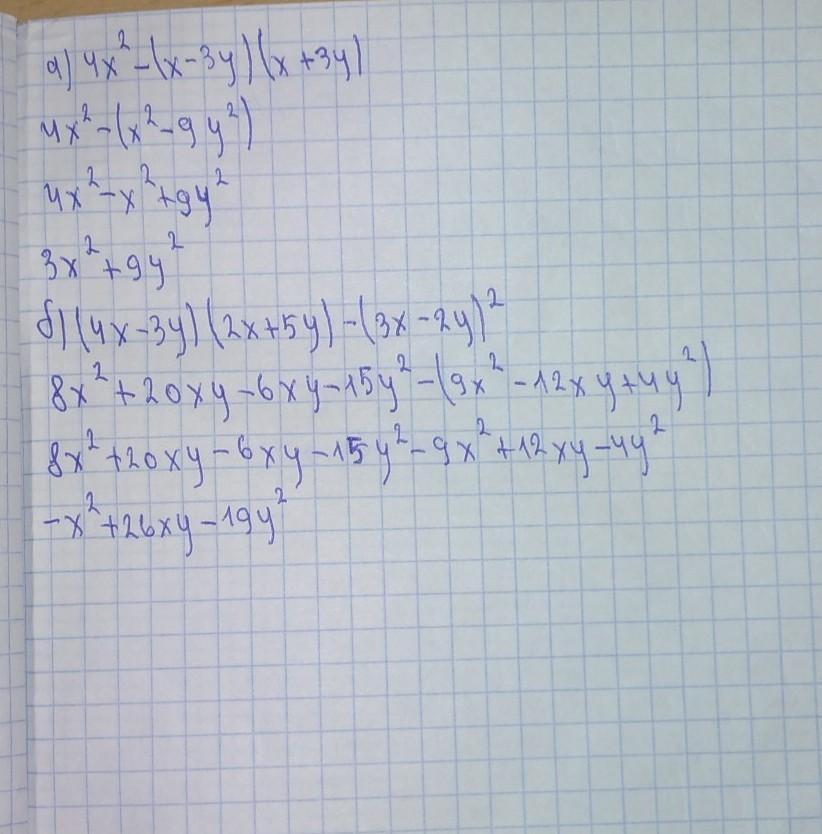 а) 4x² - (x - 3y)(x + 3y)
4x² - (x² - 9y²)
4x² - x² + 9y²
3x² + 9y²
б) (4x - 3y)(2x + 5y) - (3x - 2y)²
8x² + 20xy - 6xy - 15y² - (9x² - 12xy + 4y²)
8x² + 20xy - 6xy - 15y² - 9x² + 12xy - 4y²
-x² + 26xy - 19y²